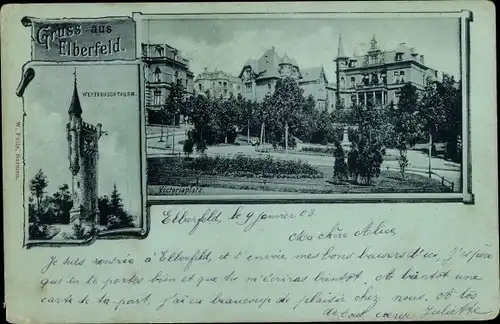 Gruss aus
Elberfeld.
WEYERBUSCHTHURM.
W. Fülle, Barmen.
Victoriaplatz.
Elberfeld, le 9 janvier 03
Ma chère Alice
Je suis rentrée à Elberfeld, et t'envoie mes bons baisers d'ici, J'espère
que tu te portes bien et que tu m'écriras bientôt. A bientôt une
carte de ta part, j'ai eu beaucoup de plaisir chez nous. A toi
de tout cœur Juliette